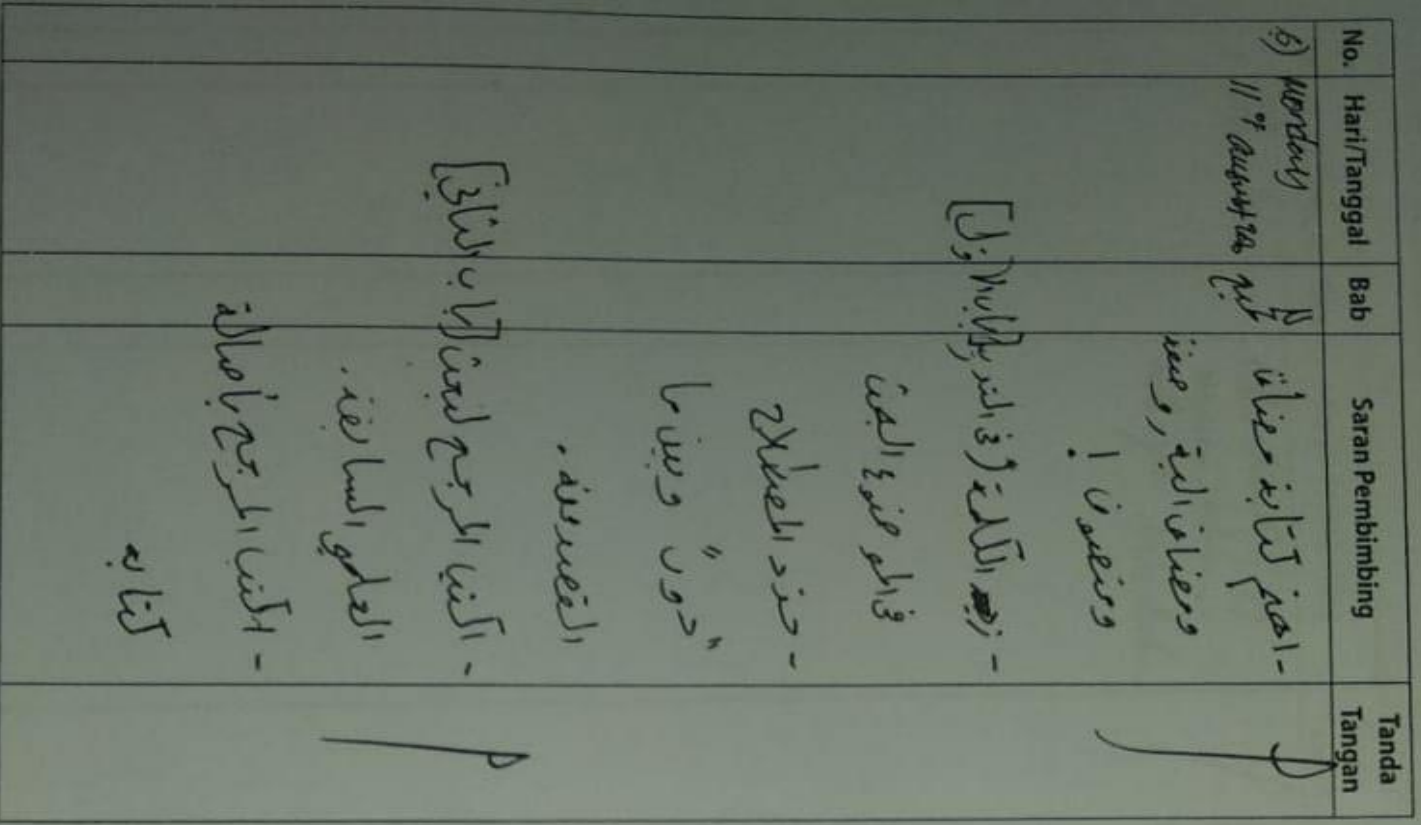 No. Hari/Tanggal Bab Saran Pembimbing Tanda Tangan
6) Monday
11 August
- اهتم كتابة مضاف
ومضاف إليه، وصفة
وموصوف !
الكلمة (في [الباب الأول]
في الموضوع البحث
- حدد المصطلح
"دون" وبين ما
- اكتب المرجع لبحث [الباب الثاني]
العلمي السابقة.
- اكتب المرجع بأصالة
كتابه